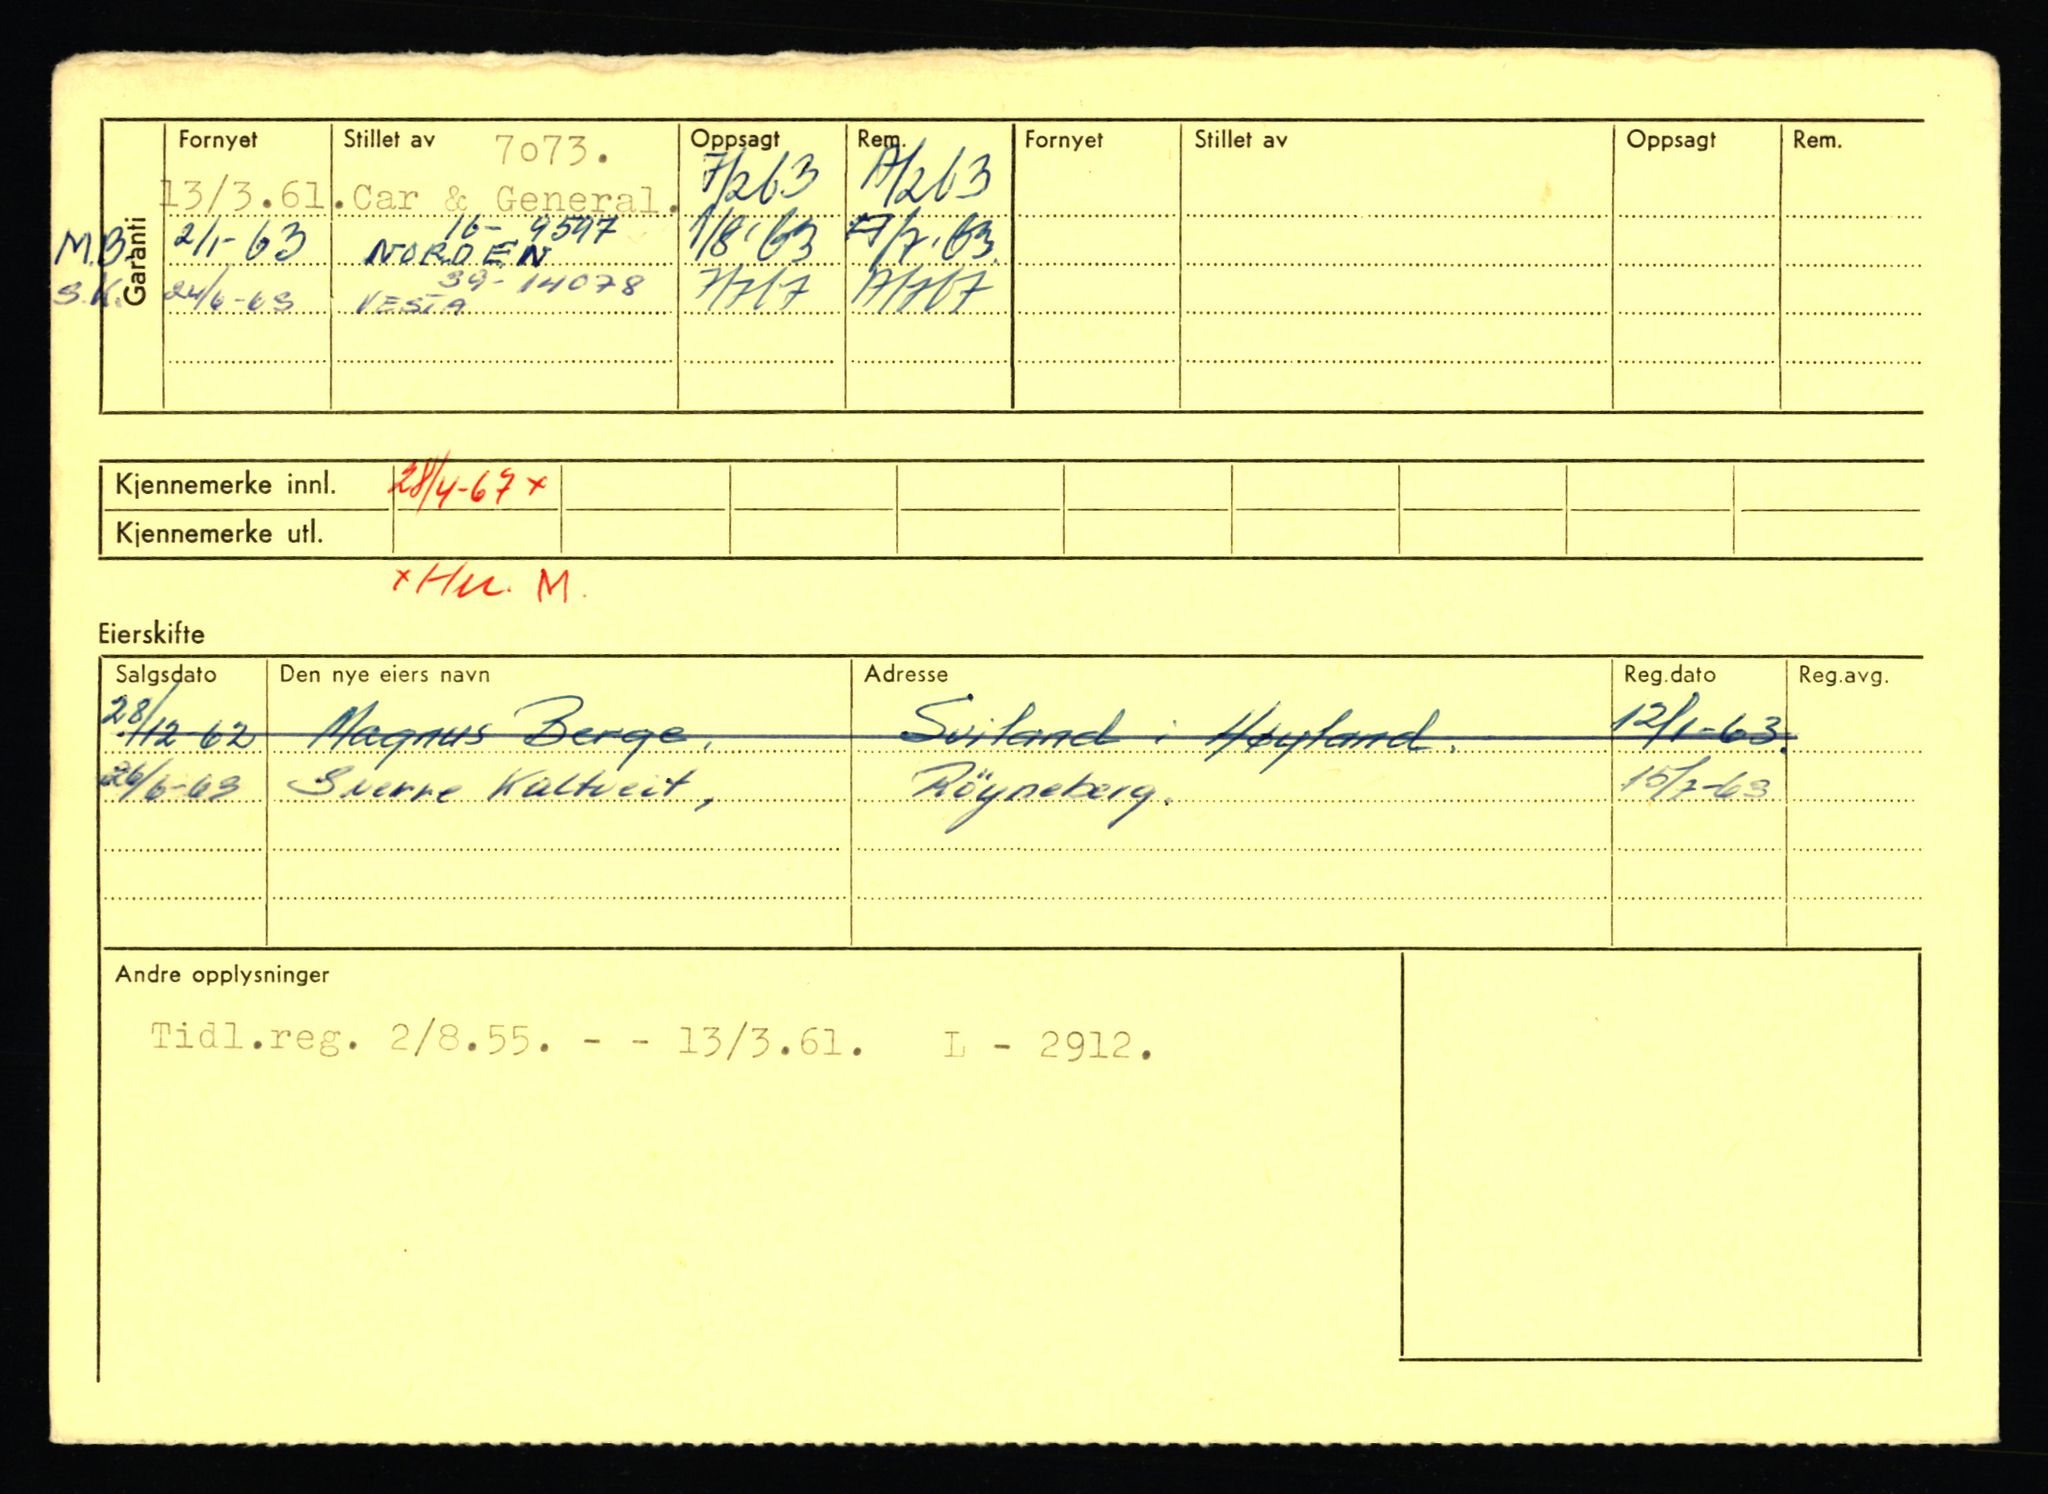 Garanti
Fornyet Stillet av 7073. Oppsagt Rem. Fornyet Stillet av Oppsagt Rem.
13/3.61. Car & General. 7/2 63 17/2 63
M.B. 2/1-63 16- 9597 NORDEN 1/8.63 17/7.63.
S.K. 24/6-63 39-14078 VESTA 7/7 67 17/7 67
Kjennemerke innl. 28/4-67 x
Kjennemerke utl.
x Hu. M.
Eierskifte
Salgsdato Den nye eiers navn Adresse Reg.dato Reg.avg.
28/12-62 Magnus Berge, Sviland i Høyland. 12/1-63.
26/6-63 Sverre Kaltveit, Röyneberg. 15/7-63
Andre opplysninger
Tidl.reg. 2/8.55. - - 13/3.61. L - 2912.